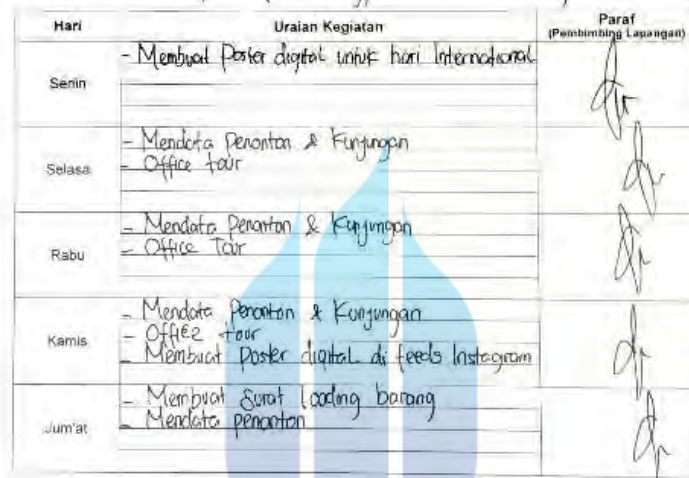 Hari Uraian Kegiatan Paraf
(Pembimbing Lapangan)
Senin
- Membuat Poster digital untuk hari International
Selasa
- Mendata Penonton & Kunjungan
- Office tour
Rabu
- Mendata Penonton & Kunjungan
- Office Tour
Kamis
- Mendata Penonton & Kunjungan
- Office tour
- Membuat Poster digital di feeds Instagram
Jum'at
- Membuat Surat loading barang
- Mendata penonton